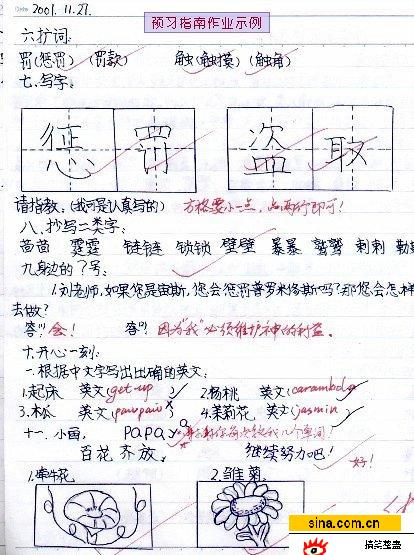 Date 2001.11.27.
预习指南作业示例
六.扩词:
罚(惩罚) (罚款) 触(触摸) (触角)
七.写字:
惩 罚 盗 取
请指教: (我可是认真写的) 方格要小一点,占两行即可!
八.抄写二类字:
苗苗 霆霆 链链 锁锁 壁壁 暴暴 鹫鹫 刺刺 勒
九.身边的?号:
1.刘老师,如果您是宙斯,您会惩罚普罗米修斯吗?那您会怎样
去做?
答:会! 答: 因为"我"必须维护神的利益。
十.开心一刻:
一.根据中文字写出正确的英文:
1.起床 英文(get up) 2.杨桃 英文(carambola)
3.木瓜 英文(pawpaw) 4.茉莉花 英文(jasmin)
十一.小画, papaya
百花齐放。 继续努力吧! 好!
1.牵牛花 2.雏菊
sina.com.cn
搞笑整蛊